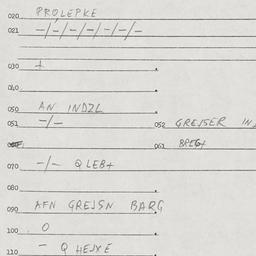 020 PROLEPKE
021 -/-/-/-/-/-/-
030 +
040
050 AN INDZL
051 -/- 052 GREJSER IN
061 BREG+
070 -/- QLEB+
080
090 AFN GREJSN BARG
100 O
110 - Q HEJXE